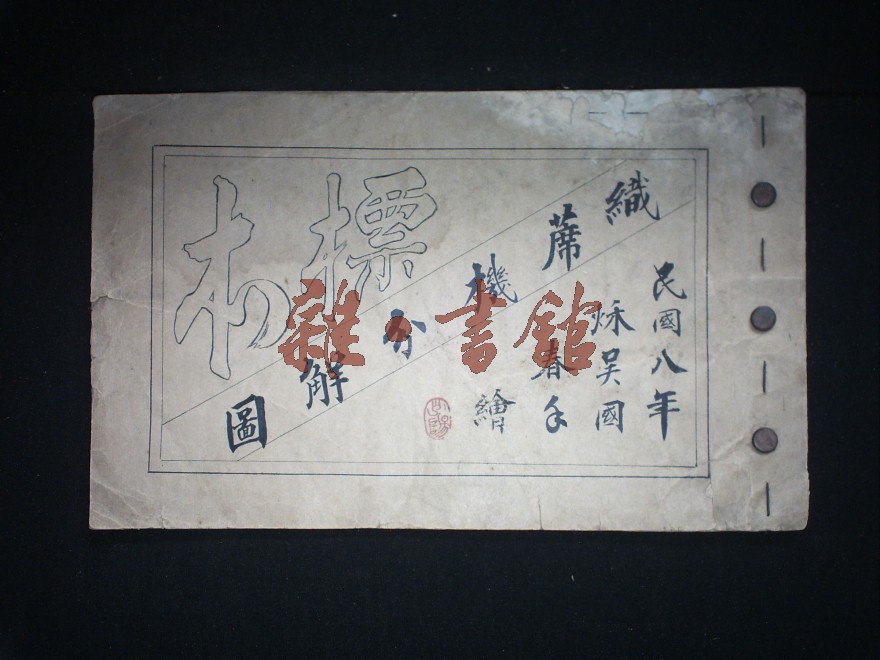 標本
織蓆機分解圖
民國八年
秌吳國
春手
繪
雜·書館